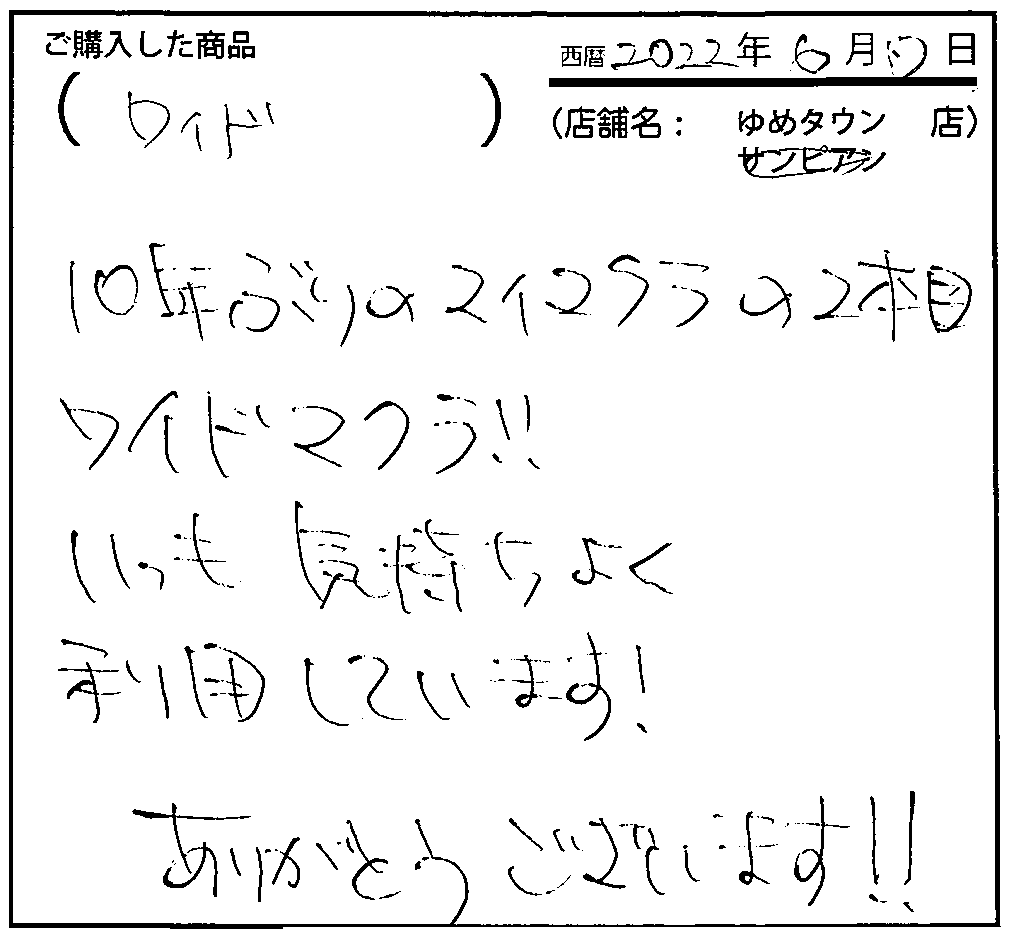 ご購入した商品
(ワイド)
西暦 2022年 6月 17日
(店舗名: ゆめタウン サンピアン 店)
10年ぶりのマイマクラの2本目
ワイドマクラ!!
いつも気持ちよく
利用しています!
ありがとうございます!!